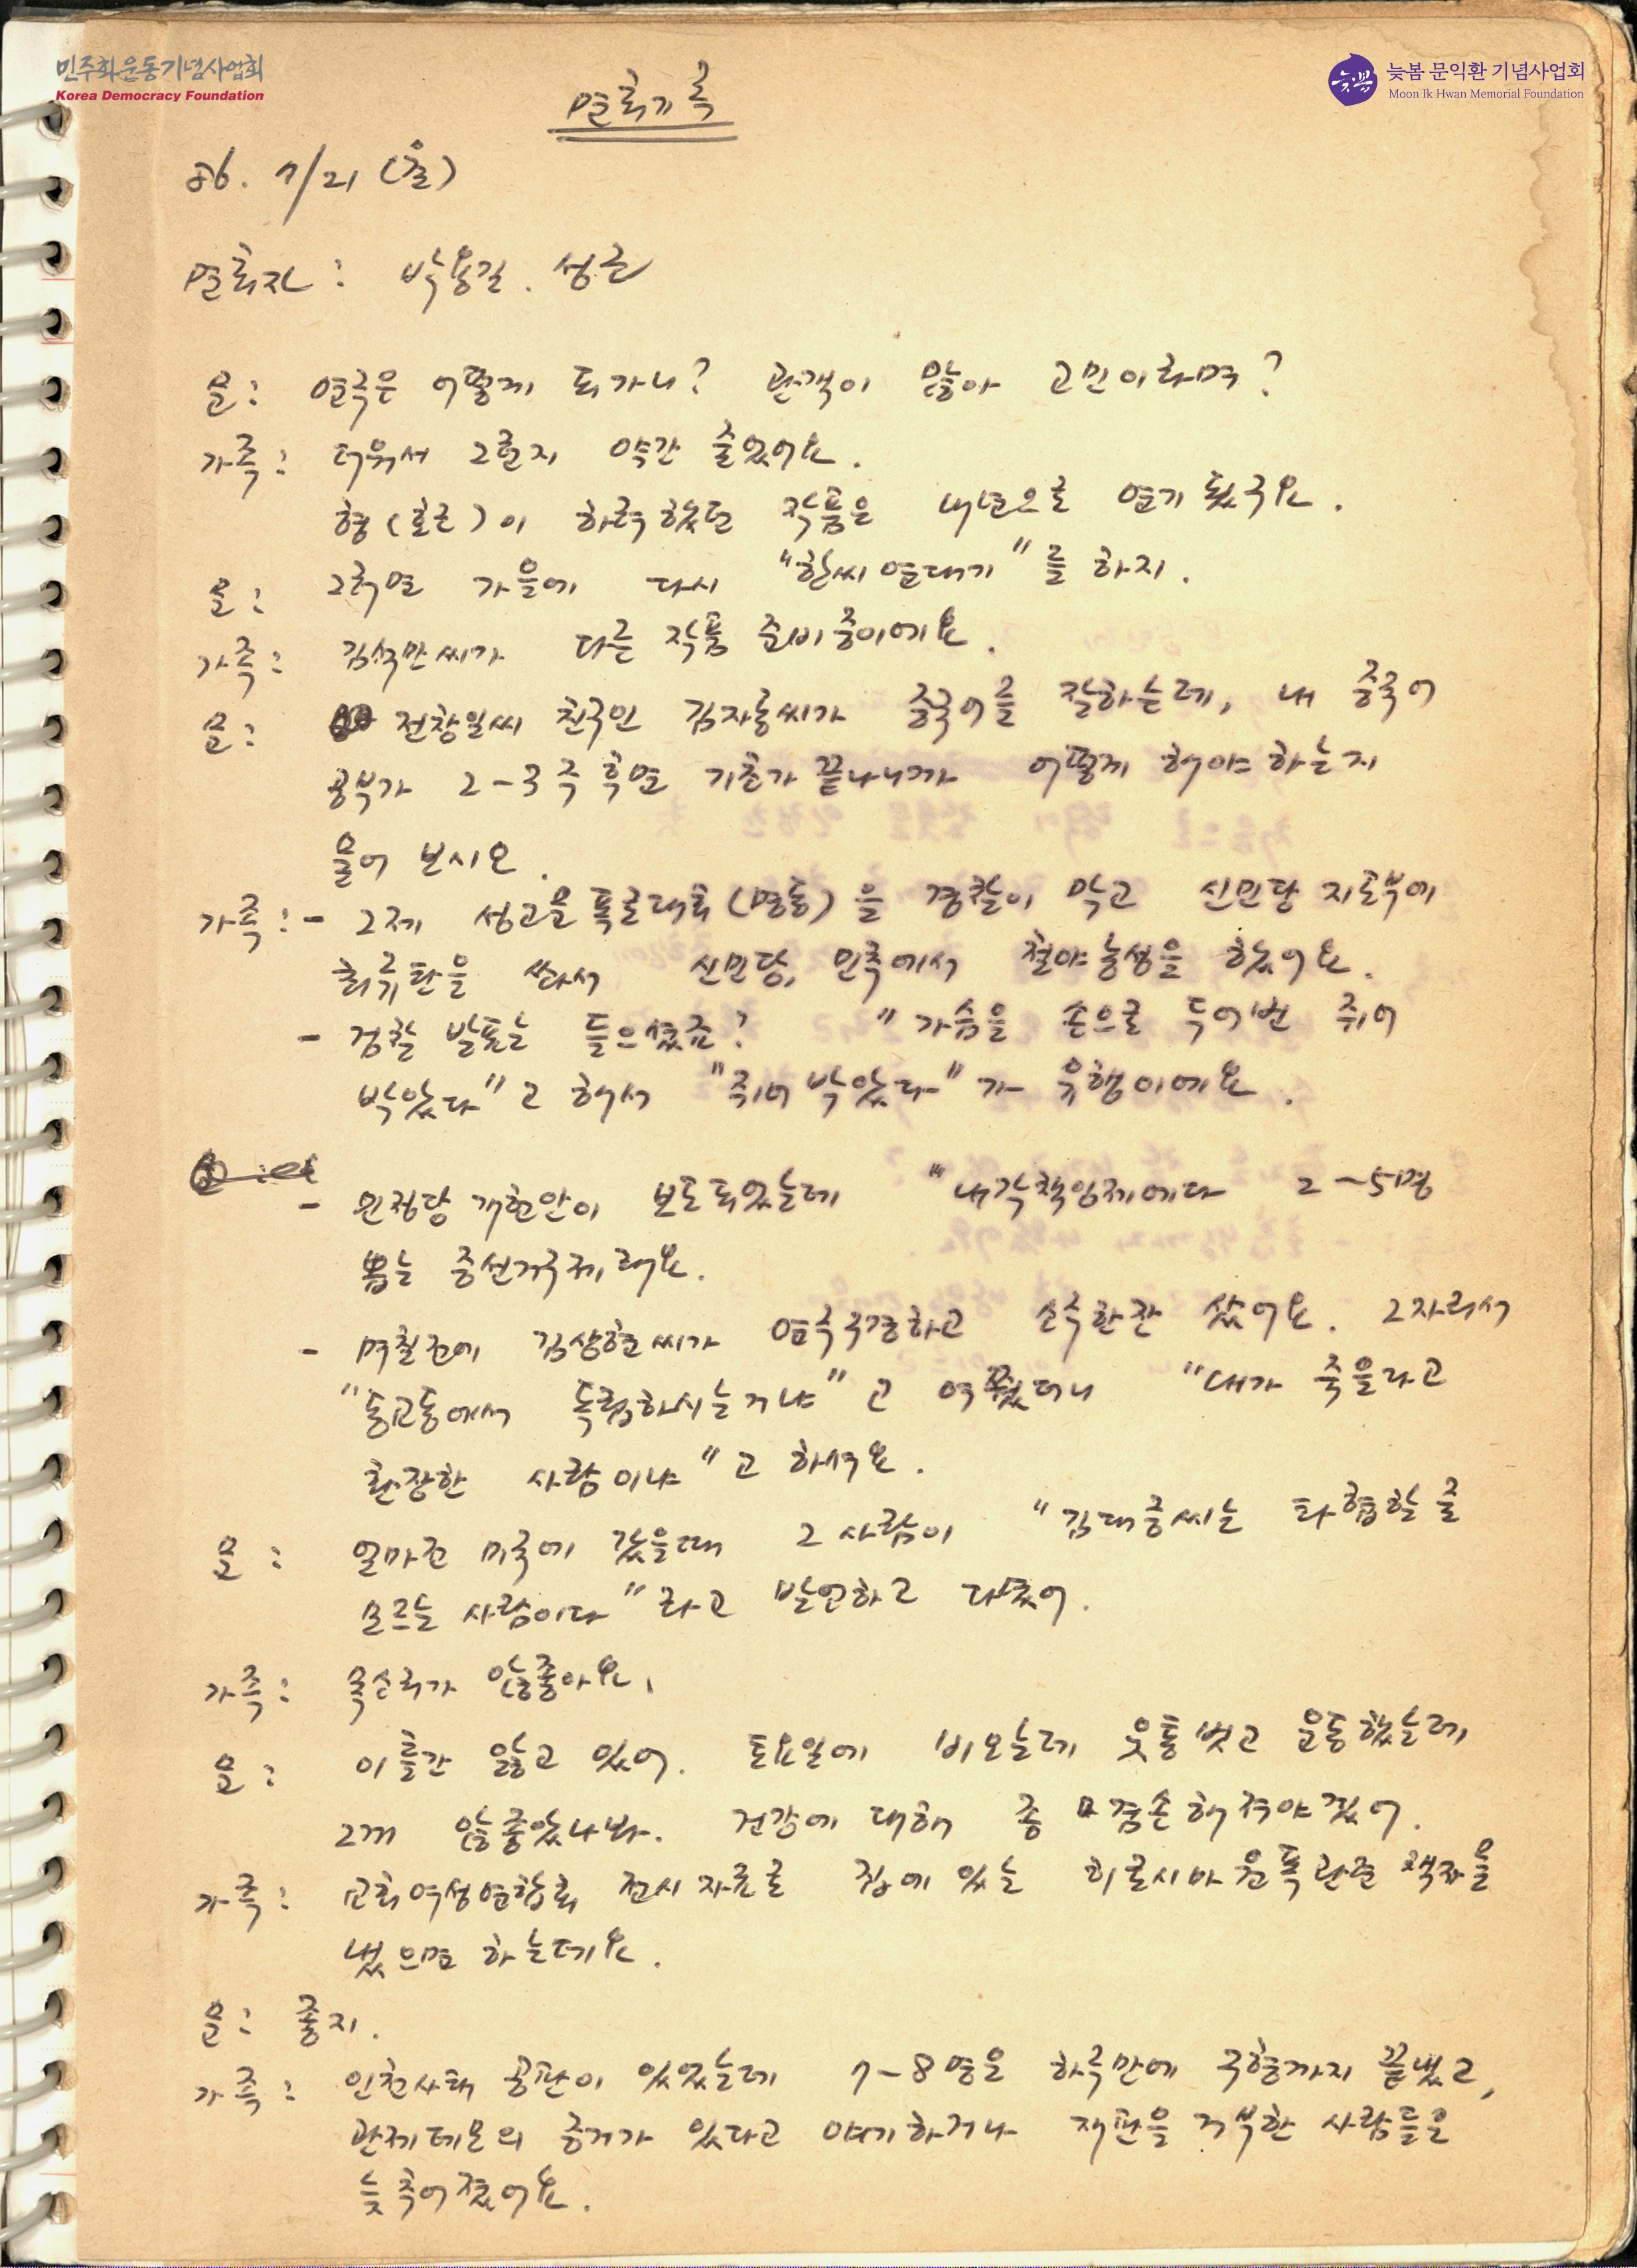 민주화운동기념사업회
Korea Democracy Foundation
늦봄 문익환 기념사업회
Moon Ik Hwan Memorial Foundation
늦봄
면회기록
86. 7/21 (월)
면회자 : 박용길. 성근
문 : 연극은 어떻게 되가니? 관객이 많아 고민이라며?
가족 : 더워서 그런지 약간 줄었어요.
형(호근)이 하려했던 작품은 내년으로 연기 됐구요.
문 : 그러면 가을에 다시 "한씨연대기"를 하지.
가족 : 김석만씨가 다른 작품 준비중이에요.
문 : 전창일씨 친구인 김자동씨가 중국어를 잘하는데, 내 중국어
공부가 2-3주 후면 기초가 끝나니까 어떻게 해야 하는지
물어 보시오.
가족 : - 그제 성고문 폭로대회(명동)을 경찰이 막고 신민당 지도부에
최루탄을 쏴서 신민당, 민추에서 철야농성을 했어요.
- 검찰 발표는 들으셨죠? "가슴을 손으로 두어번 쥐어
박았다"고 해서 "쥐어박았다"가 유행이에요.
- 민정당 개헌안이 보도되었는데 "내각책임제에다 2-5명
뽑는 중선거구제래요.
- 며칠전에 김상현씨가 연극구경하고 소주한잔 샀어요. 그자리서
"동교동에서 독립하시는거냐"고 여쭸더니 "내가 죽을라고
환장한 사람이냐"고 하셔요.
문 : 얼마전 미국에 갔을때 그 사람이 "김대중씨는 타협할 줄
모르는 사람이다"라고 발언하고 다녔어.
가족 : 목소리가 안좋아요.
문 : 이틀간 앓고 있어. 토요일에 비오는데 웃통벗고 운동했는데
그게 안좋았나봐. 건강에 대해 좀 겸손해져야겠어.
가족 : 교회여성연합회 전시자료로 집에 있는 히로시마 원폭관련 책자를
냈으면 하는데요.
문 : 좋지.
가족 : 인천사태 공판이 있었는데 7-8명을 하루만에 구형까지 끝냈고,
관제데모의 증거가 있다고 얘기하거나 재판을 거부한 사람들은
늦추어졌어요.